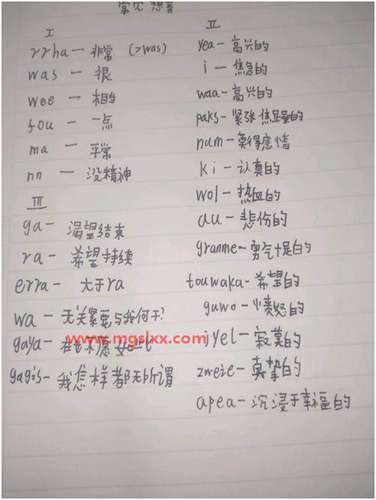 常见想音
I
rrha — 非常 (>was)
was — 很
wee — 相当
fou — 一点
ma — 平常
nn — 没精神
III
ga — 渴望结束
ra — 希望持续
erra — 大于ra
wa — 无关紧要与我何干?
gaya —
gagis — 我怎样都无所谓
II
yea — 高兴的
i — 焦急的
waa — 高兴的
paks — 紧张 焦
num — 莫得感情
ki — 认真的
wol — 热血的
au — 悲伤的
granme — 勇气十足的
touwaka — 希望的
guwo — 愤怒的
iyel — 寂寞的
zweie — 真挚的
apea — 沉浸于幸福的
www.mgslxx.com